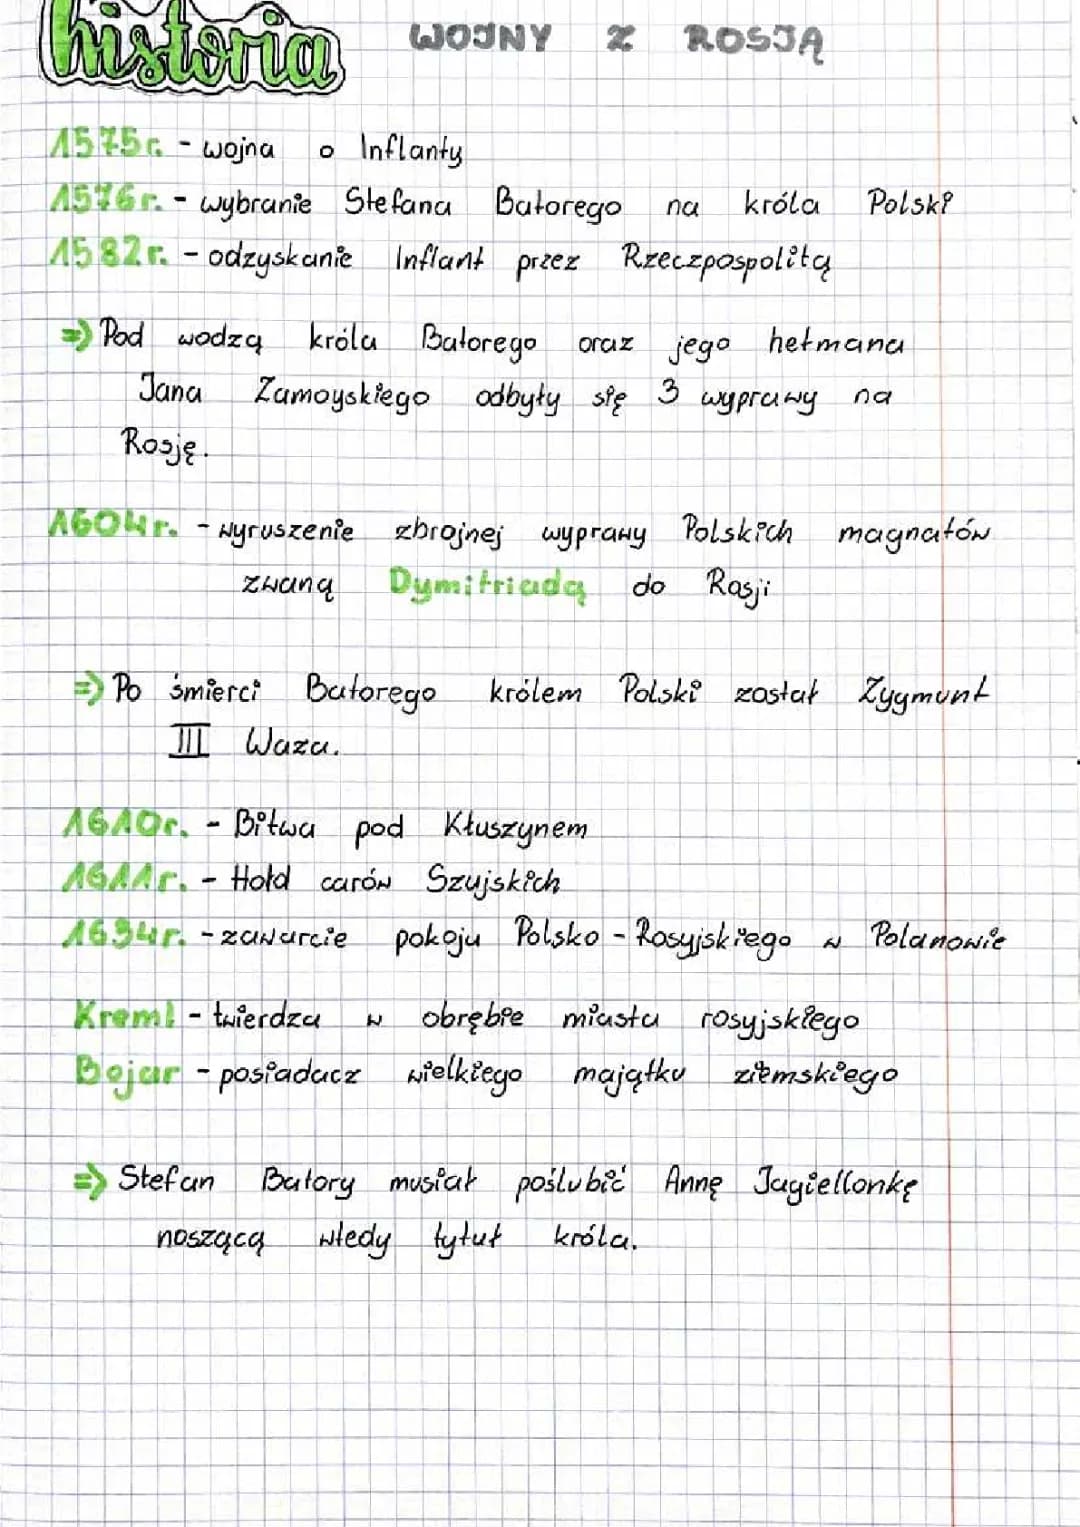 historia WOJNY Z ROSJĄ
1575r. - wojna o Inflanty
1576r. - wybranie Stefana Batorego na króla Polski
1582r. - odzyskanie Inflant przez Rzeczpospolitą
=> Pod wodzą króla Batorego oraz jego hetmana
Jana Zamoyskiego odbyły się 3 wyprawy na
Rosję.
1604r. - wyruszenie zbrojnej wyprawy Polskich magnatów
zwaną Dymitriadą do Rosji
=> Po śmierci Batorego królem Polski został Zygmunt
III Waza.
1610r. - Bitwa pod Kłuszynem
1611r. - Hołd carów Szujskich
1634r. - zawarcie pokoju Polsko - Rosyjskiego w Polanowie
Kreml - twierdza w obrębie miasta rosyjskiego
Bojar - posiadacz wielkiego majątku ziemskiego
=> Stefan Batory musiał poślubić Annę Jagiellonkę
noszącą wtedy tytuł króla.